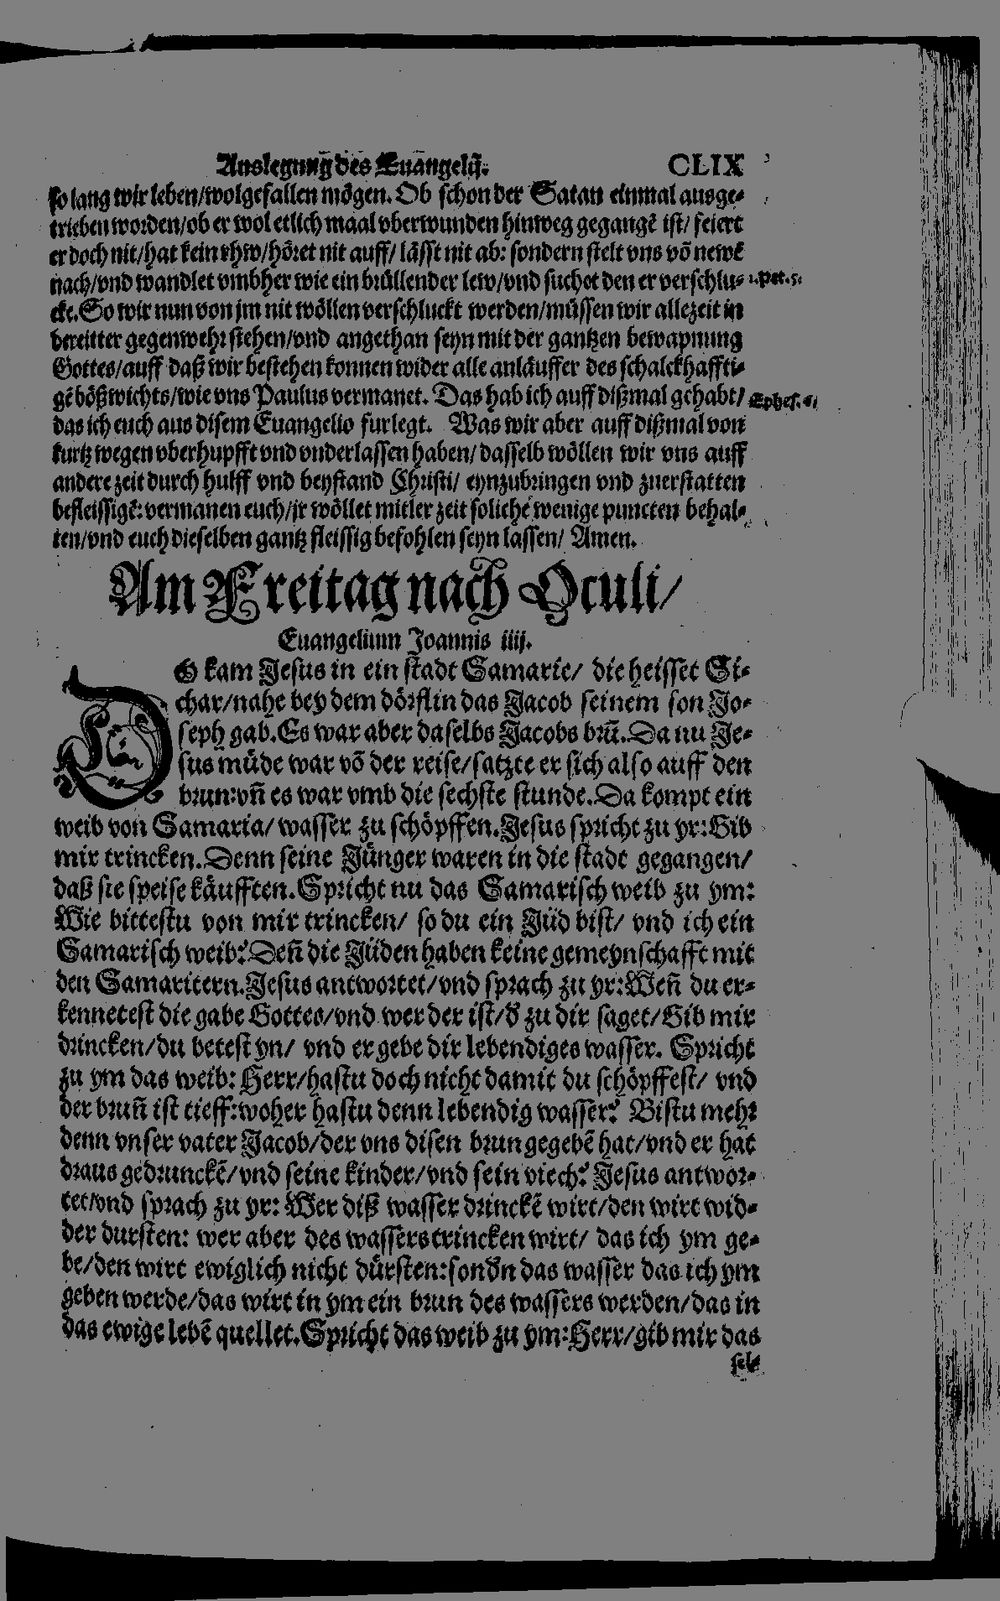 Auslegung des Euangelij. CLIX
so lang wir leben/wolgefallen mögen. Ob schon der Satan einmal ausge-
trieben worden/ob er wol etlich maal vberwunden hinweg gegangē ist/ feiert
er doch nit/hat kein rhw/höret nit auff/ lässt nit ab: sondern stelt vns vō newē
nach/vnd wandlet vmbher wie ein brüllender lew/vnd suchet den er verschlu- 1.Pet.5.
cke. So wir nun von jm nit wöllen verschluckt werden/müssen wir allezeit in
bereitter gegenwehr stehen/vnd angethan seyn mit der gantzen bewapnung
Gottes/auff daß wir bestehen konnen wider alle anläuffer des schalckhaffti-
gē bößwichts/wie vns Paulus vermanet. Das hab ich auff dißmal gehabt/ Ephes. 6.
das ich euch aus disem Euangelio furlegt. Was wir aber auff dißmal von
kurtz wegen vberhupfft vnd vnderlassen haben/ dasselb wöllen wir vns auff
andere zeit durch hulff vnd beystand Christi/ eynzubringen vnd zuerstatten
befleissigē: vermanen euch/jr wöllet mitler zeit soliche wenige puncten behal-
ten/vnd euch dieselben gantz fleissig befohlen seyn lassen/ Amen.
Am Freitag nach Oculi/
Euangelium Joannis iiij.
DO kam Jesus in ein stadt Samarie/ die heisset Si-
char/nahe bey dem dörflin das Jacob seinem son Jo-
seph gab. Es war aber daselbs Jacobs brūn. Da nu Je-
sus müde war vō der reise/satzte er sich also auff den
brun:vñ es war vmb die sechste stunde. Da kompt ein
weib von Samaria/ wasser zu schöpffen. Jesus spricht zu yr: Gib
mir trincken. Denn seine Jünger waren in die stadt gegangen/
daß sie speise käufften. Spricht nu das Samarisch weib zu ym:
Wie bittestu von mir trincken/ so du ein Jüd bist/ vnd ich ein
Samarisch weib? Deñ die Jüden haben keine gemeynschafft mit
den Samaritern. Jesus antwortet/vnd sprach zu yr: Weñ du er-
kennetest die gabe Gottes/vnd wer der ist/ď zu dir saget/Gib mir
drincken/du betest yn/ vnd er gebe dir lebendiges wasser. Spricht
zu ym das weib: Herr/hastu doch nicht damit du schöpffest/ vnd
der bruñ ist tieff:woher hastu denn lebendig wasser? Bistu mehr
denn vnser vater Jacob/der vns disen brun gegebē hat/vnd er hat
draus gedrunckē/vnd seine kinder/vnd sein viech? Jesus antwor-
tet/vnd sprach zu yr: Wer diß wasser drinckē wirt/den wirt wid-
der dursten: wer aber des wassers trincken wirt/ das ich ym ge-
be/den wirt ewiglich nicht dürsten:sonďn das wasser das ich ym
geben werde/das wirt in ym ein brun des wassers werden/das in
das ewige lebē quellet. Spricht das weib zu ym: Herr/gib mir das
sel-